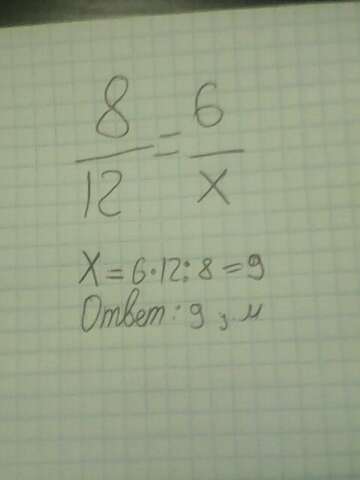 8/12 = 6/x
X = 6·12:8 = 9
Ответ: 9 з.м